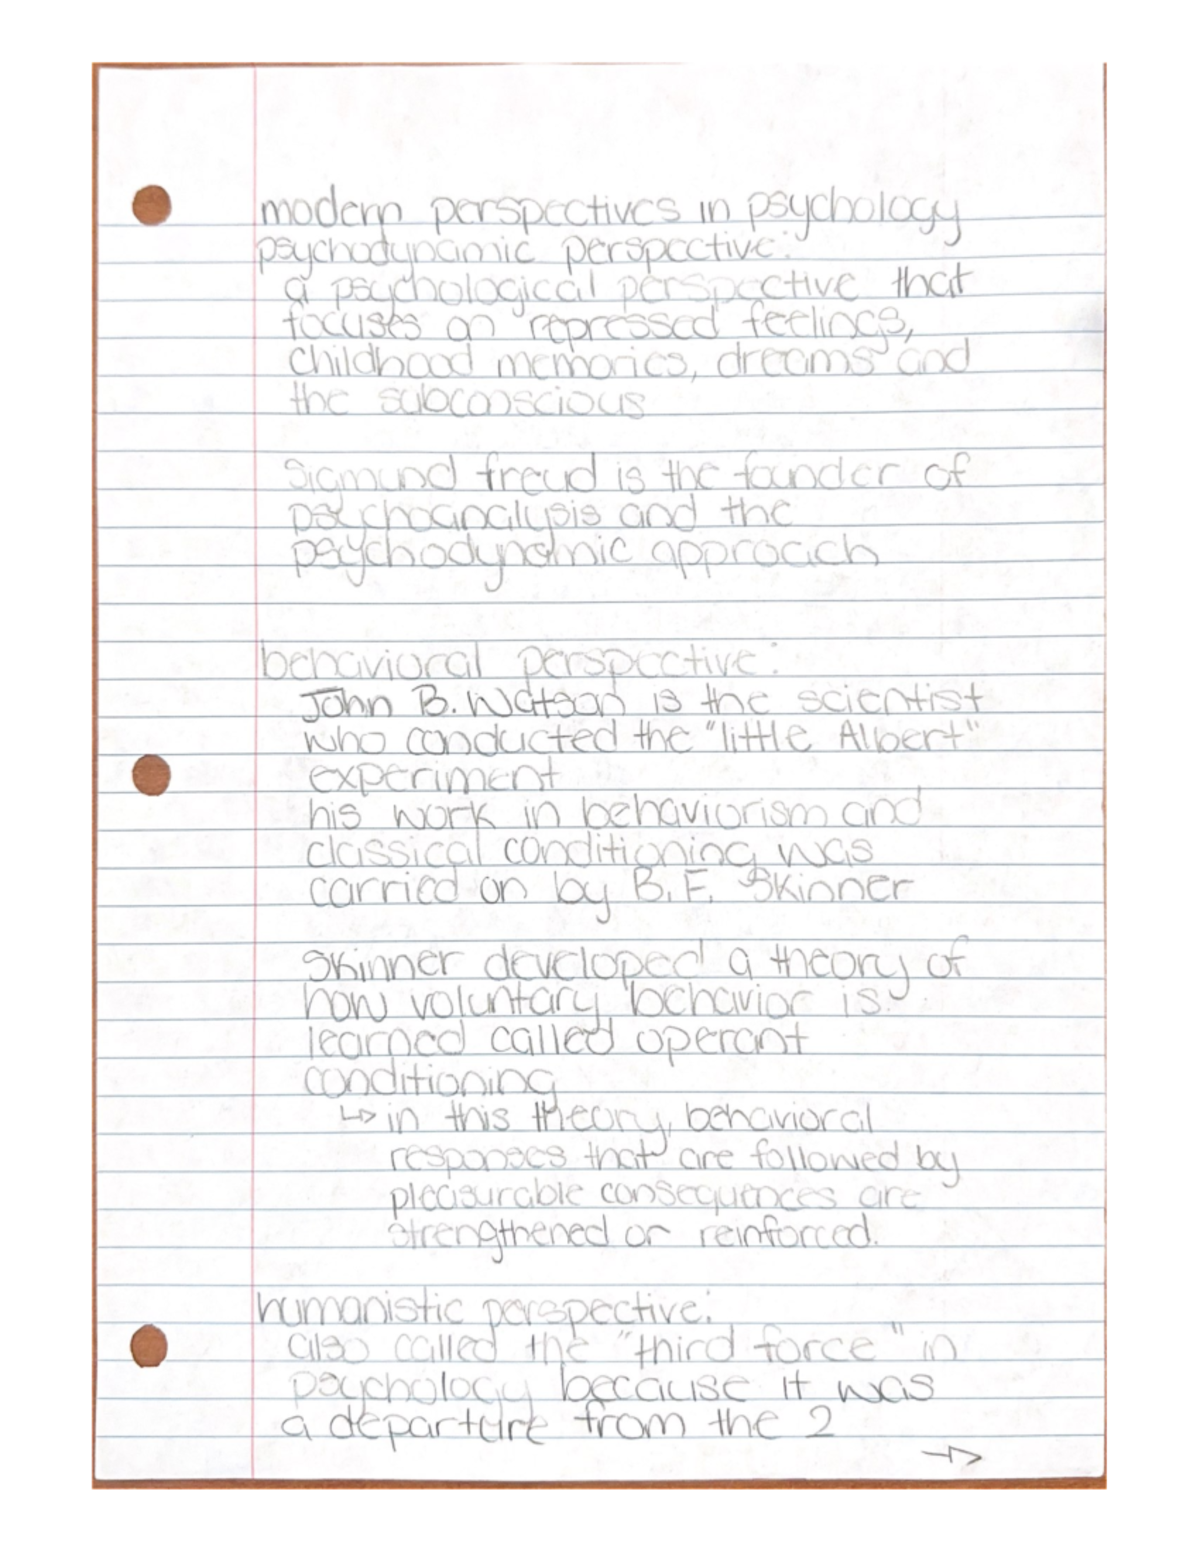 modern perspectives in psychology
psychodynamic perspective:
a psychological perspective that
focuses on repressed feelings,
childhood memories, dreams and
the subconscious
Sigmund freud is the founder of
psychoanalysis and the
psychodynamic approach
behavioral perspective:
John B. Watson is the scientist
who conducted the "little Albert"
experiment
his work in behaviorism and
classical conditioning was
carried on by B.F. Skinner
Skinner developed a theory of
how voluntary behavior is
learned called operant
conditioning
↳ in this theory, behavioral
responses that are followed by
pleasurable consequences are
strengthened or reinforced.
humanistic perspective:
also called the "third force" in
psychology because it was
a departure from the 2
→